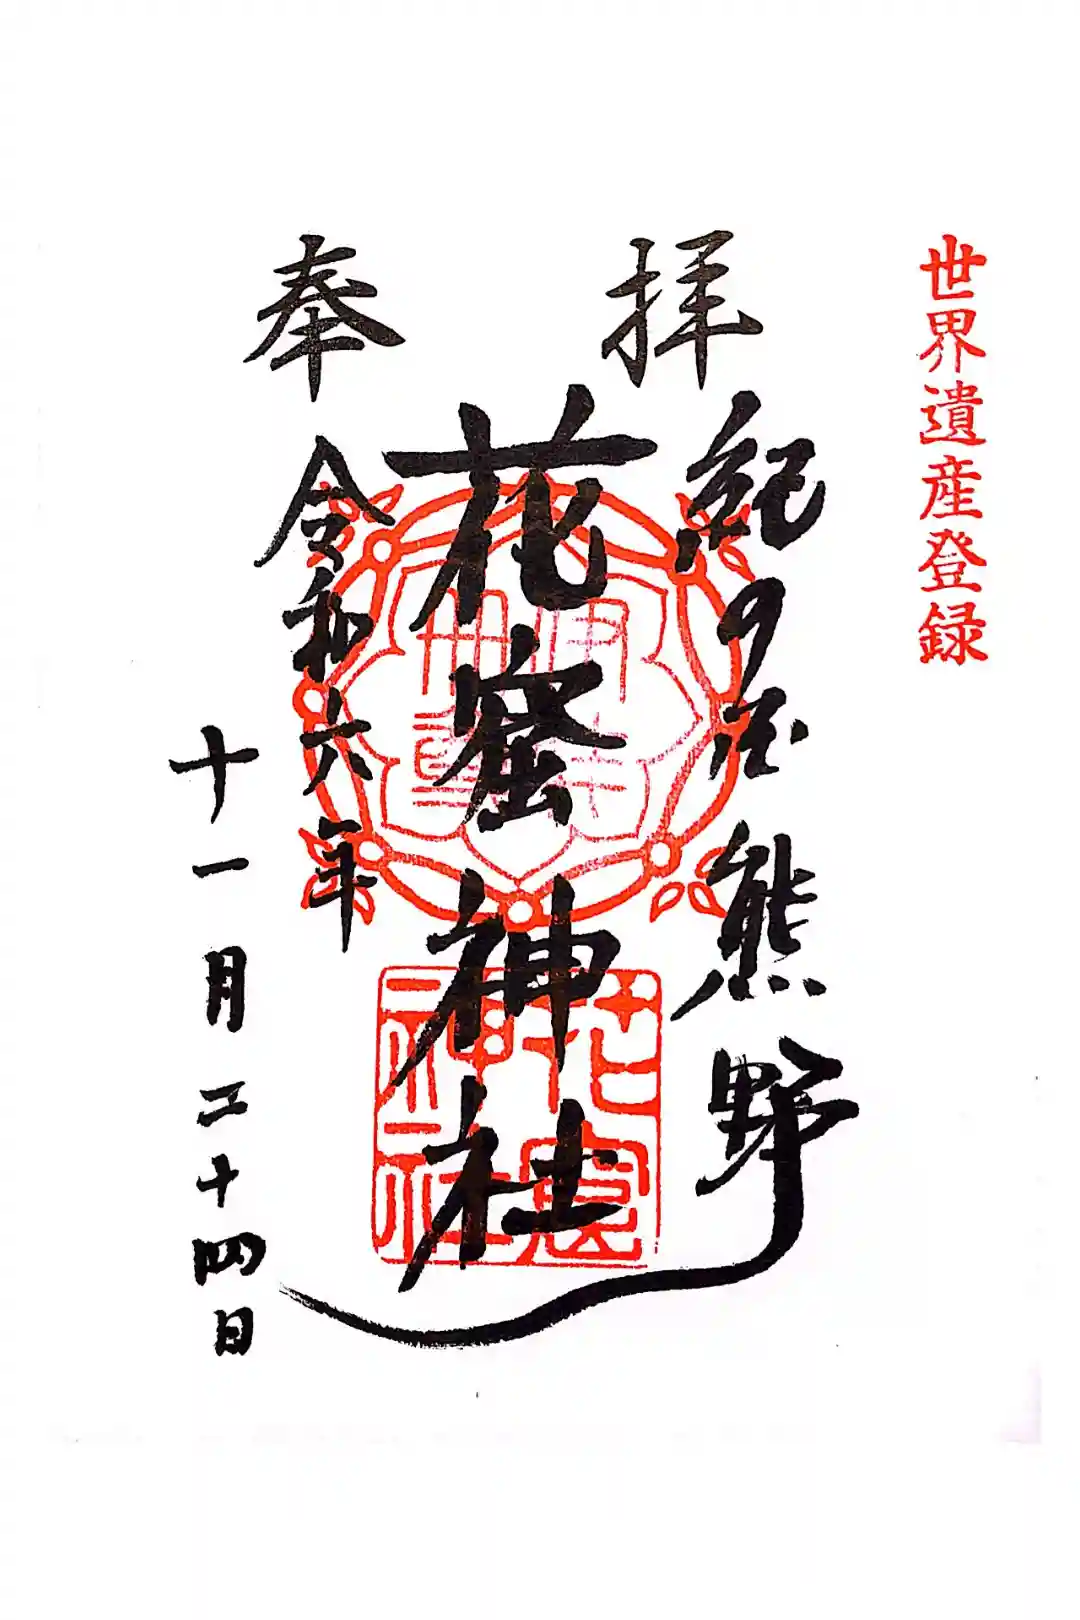 世界遺産登録
奉拝
紀の国 熊野
花窟神社
令和六年
十一月二十四日
伊弉
冊尊
花窟
神社